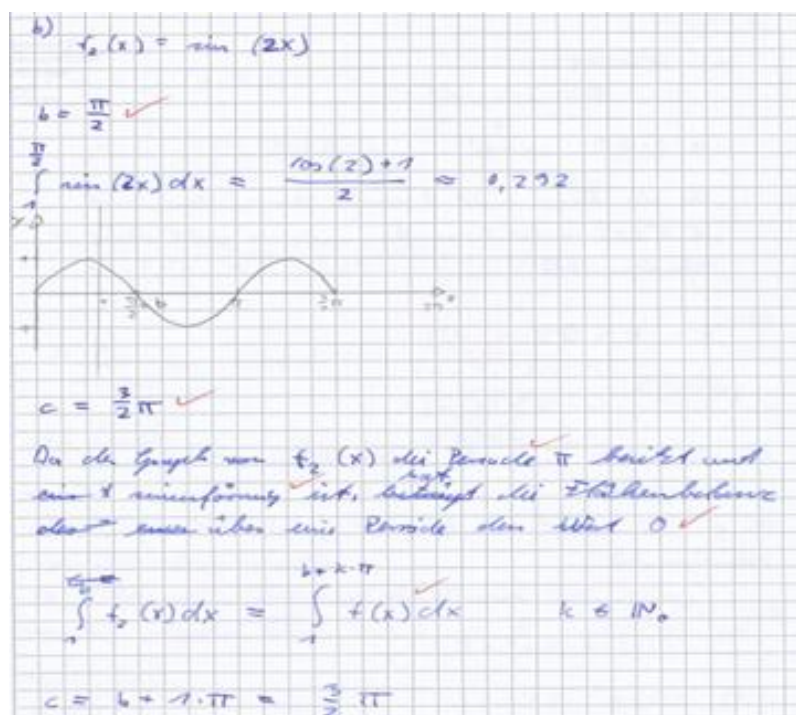 b)
f₂(x) = sin (2x)
b = π/2 ✓
∫₁^(π/2) sin (2x) dx = (cos(2)+1)/2 ≈ 0,292
c = 3/2 π ✓
Da der Graph von f₂ (x) die Periode ✓ π besitzt und
sinusförmig ✓ ist, hat die Flächenbilanz
über eine Periode den Wert 0 ✓
∫₁^b f₂ (x) dx = ∫₁^(b+k·π) f(x) dx ✓ k ∈ ℕ₀
c = b + 1·π = 3/2 π